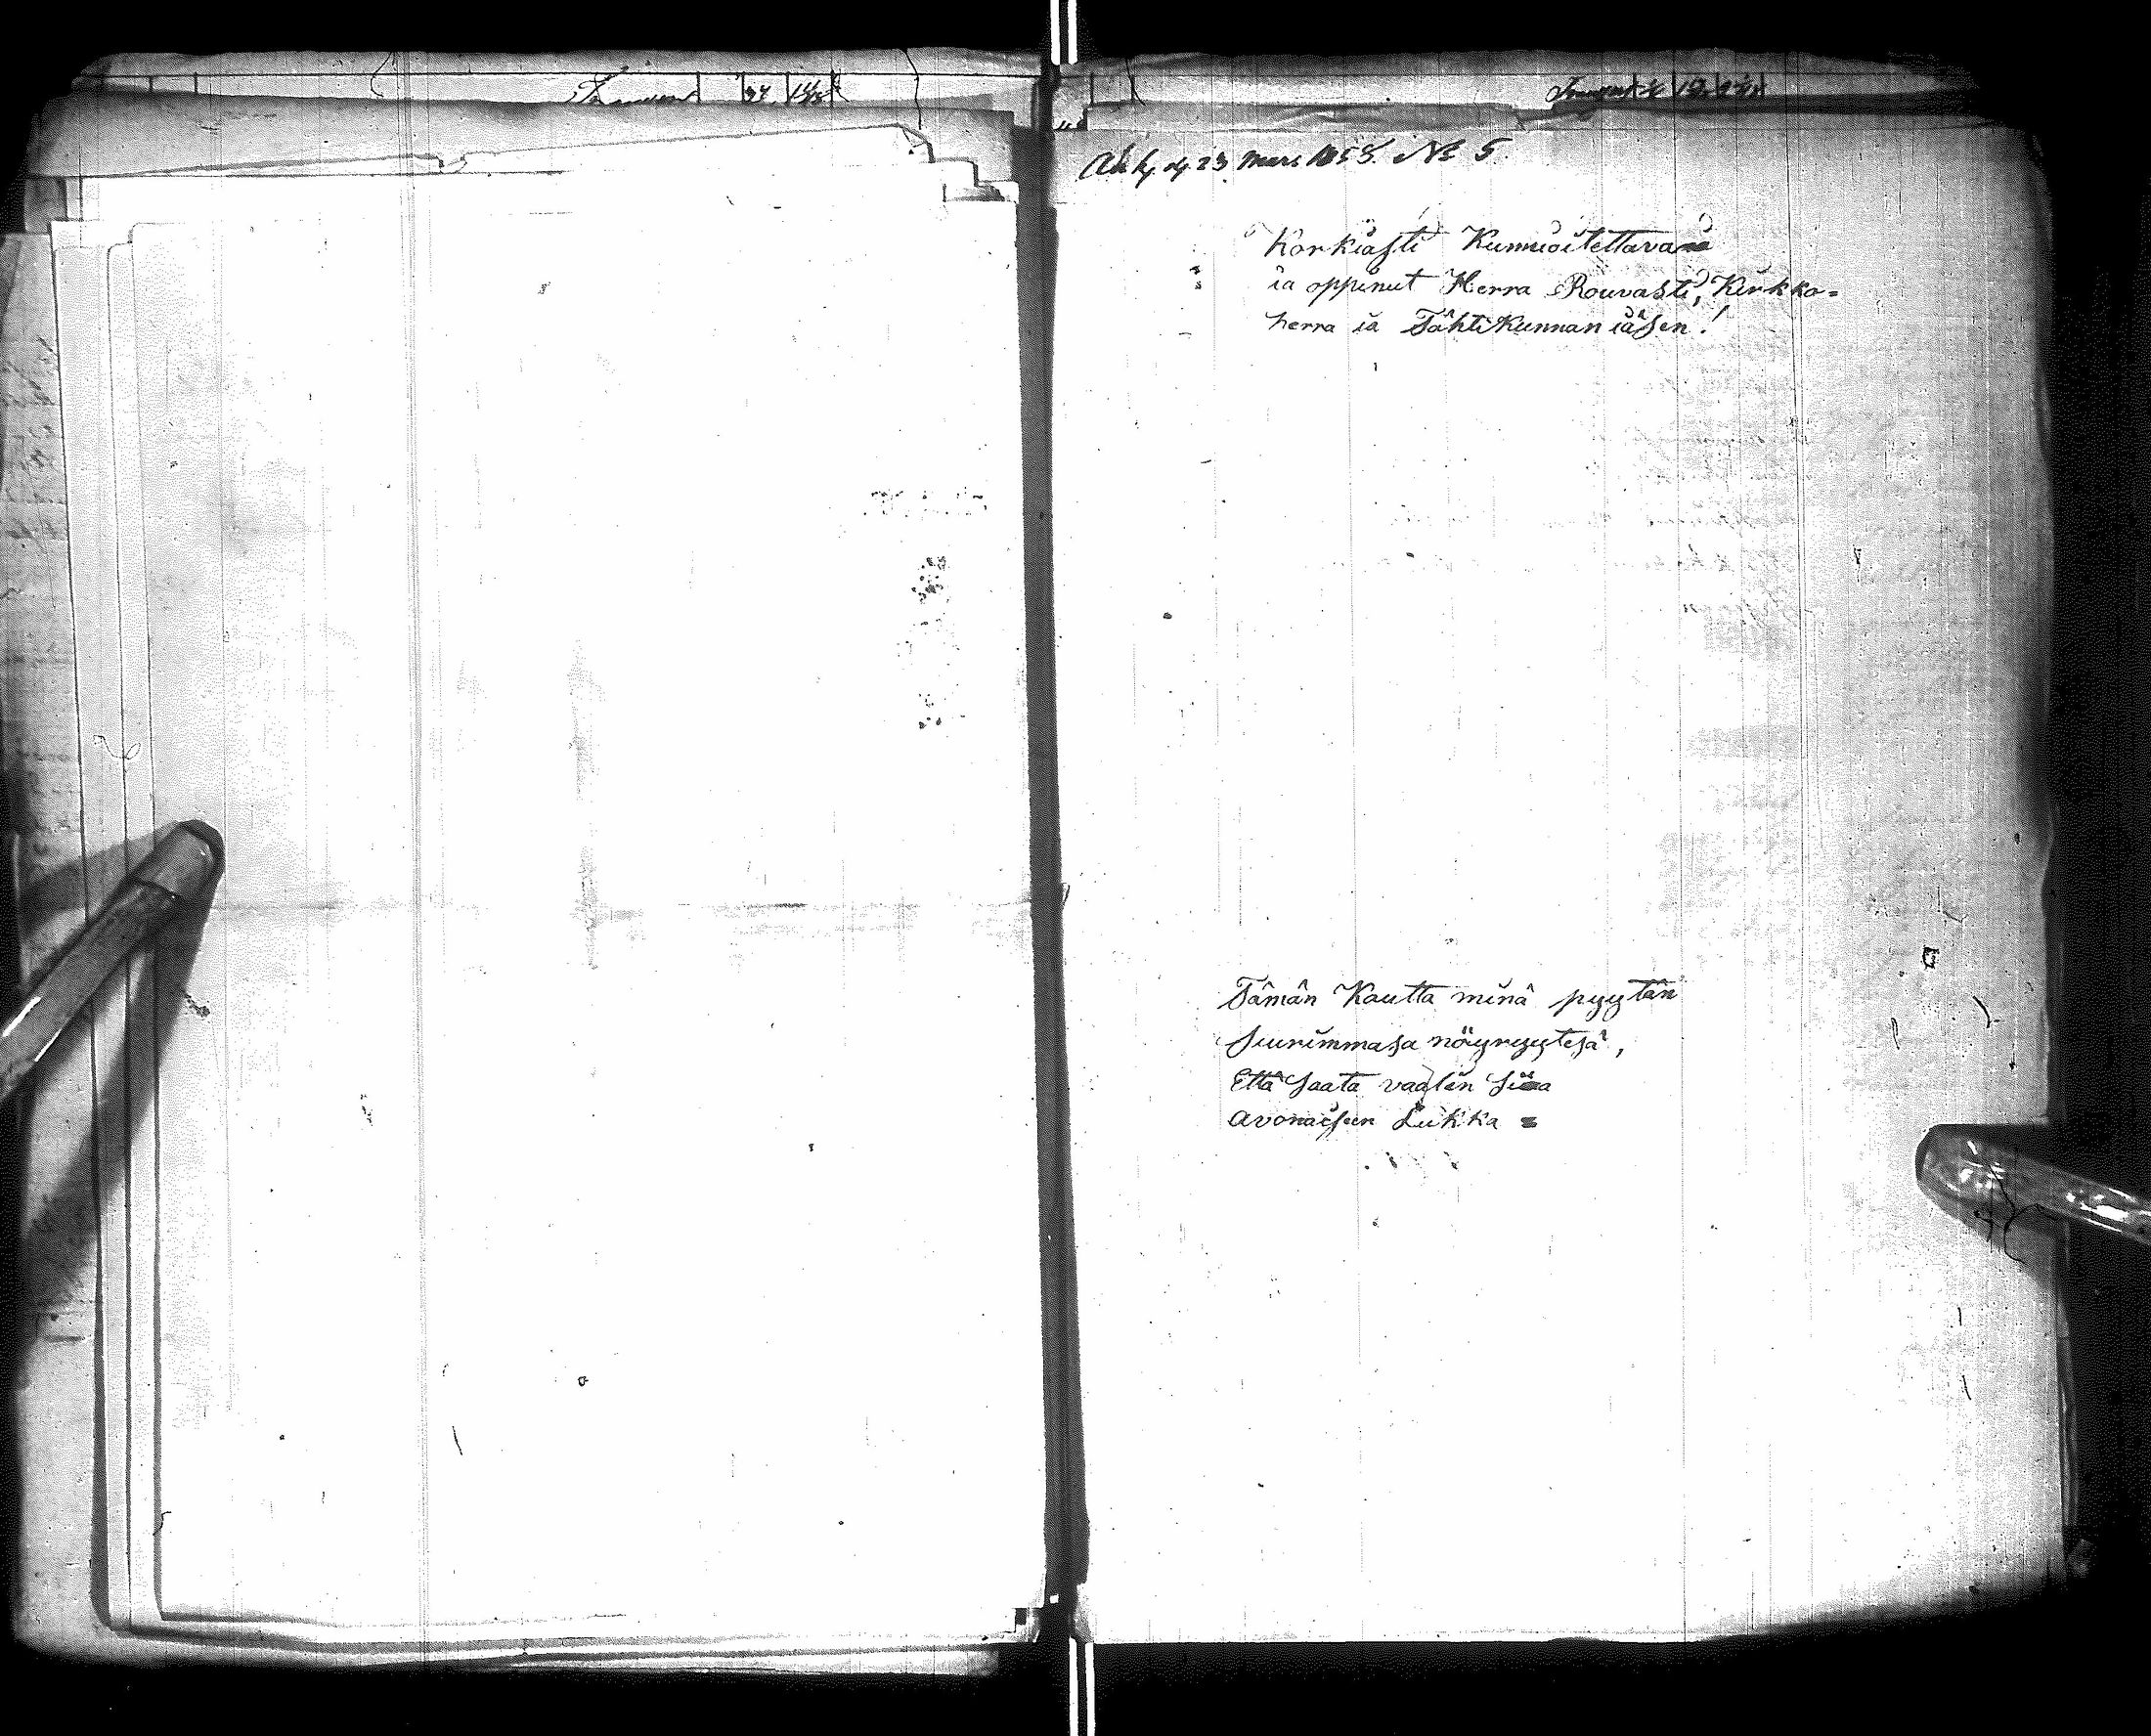 Ank. d. 23 Mars 1858. No 5.
Korkiasti Kunnioitettava
ia oppinut Herra Rouvasti, Kirkko=
herra ia Tähtikunnan iäsen!
Tämän Kautta minä pyytän
suurimmasa nöyryytesä,
Että saata vaalin
avonaisen Lukka =